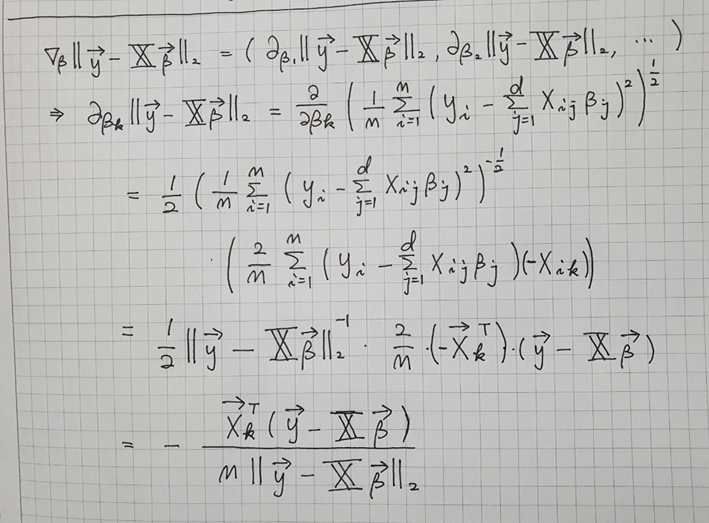 ∇β ‖y⃗ − 𝕏β⃗‖₂ = (∂β₁‖y⃗ − 𝕏β⃗‖₂, ∂β₂‖y⃗ − 𝕏β⃗‖₂, ⋯ )
⇒ ∂βₖ‖y⃗ − 𝕏β⃗‖₂ = ∂/∂βₖ ( 1/n ∑_{i=1}^{n} ( yᵢ − ∑_{j=1}^{d} X_{ij} βⱼ )² )^{1/2}
= 1/2 ( 1/n ∑_{i=1}^{n} ( yᵢ − ∑_{j=1}^{d} X_{ij} βⱼ )² )^{-1/2}
· ( 2/n ∑_{i=1}^{n} ( yᵢ − ∑_{j=1}^{d} X_{ij} βⱼ )(−X_{ik}) )
= 1/2 ‖y⃗ − 𝕏β⃗‖₂^{-1} · 2/n · (−X⃗ₖᵀ) · ( y⃗ − 𝕏β⃗ )
= − X⃗ₖᵀ ( y⃗ − 𝕏β⃗ ) / n ‖y⃗ − 𝕏β⃗‖₂